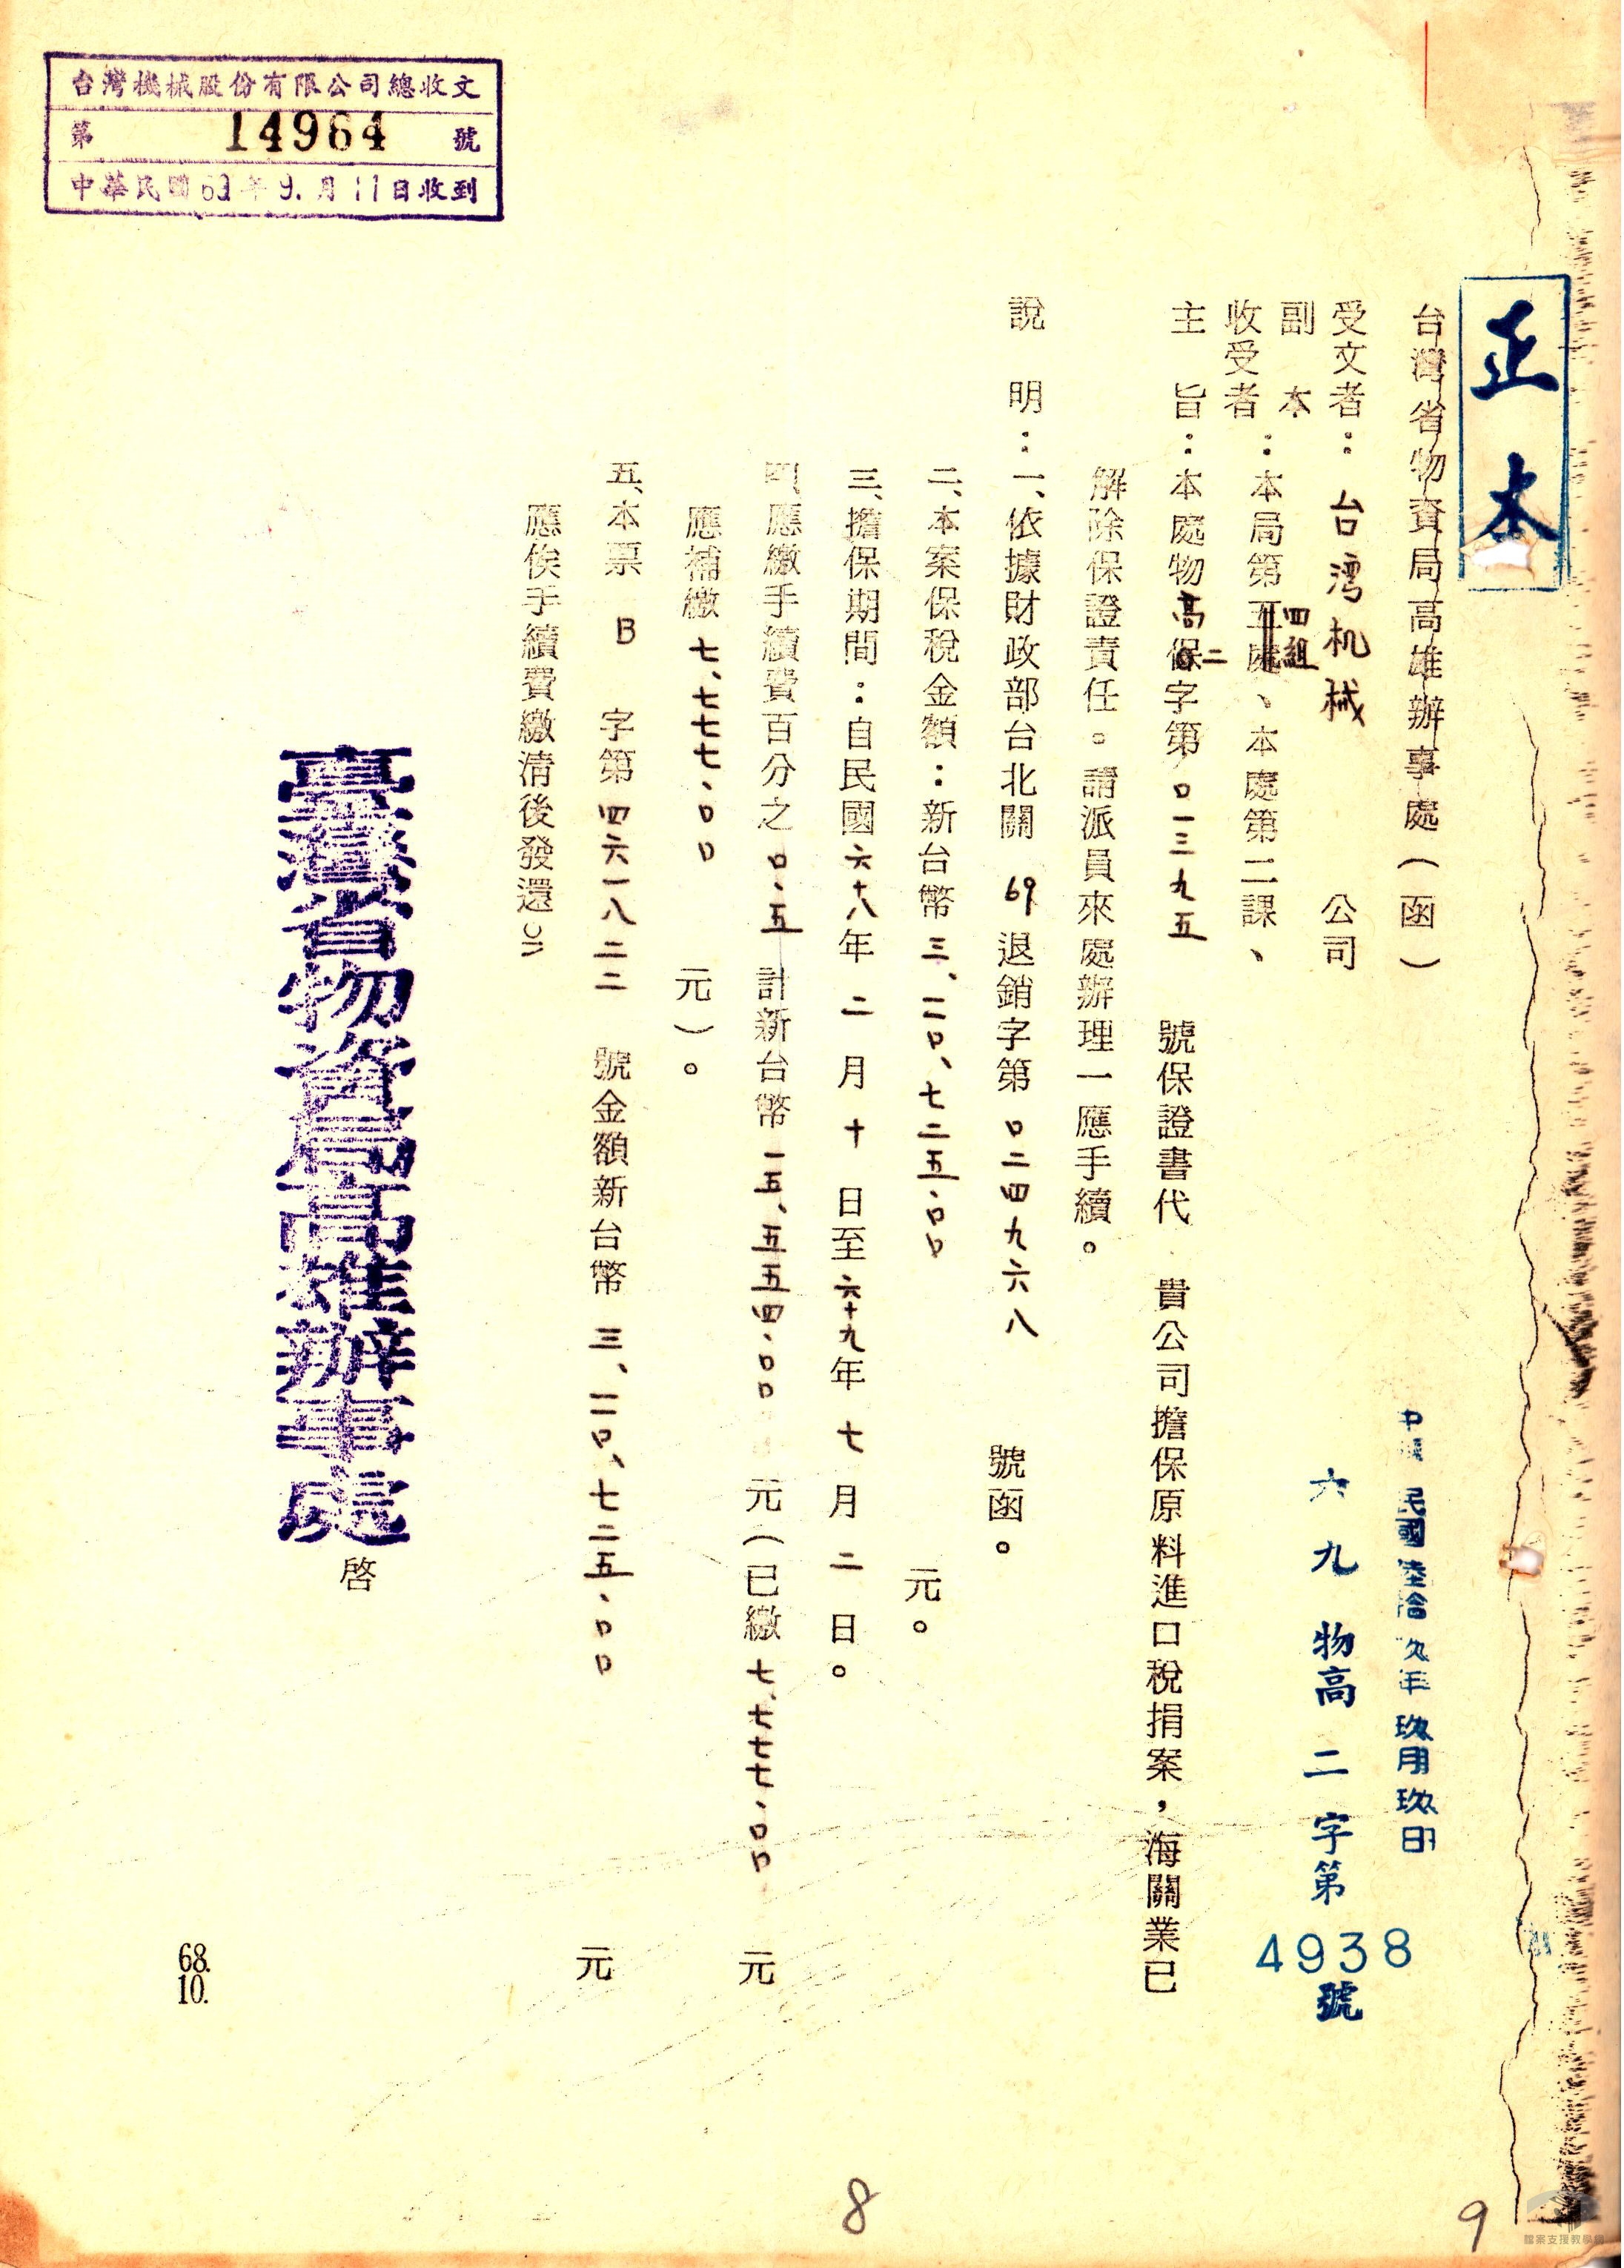 正本
台灣省物資局高雄辦事處（函）
中華民國陸拾玖年玖月玖日
受文者：台湾机械 公司
六九物高二字第4938號
副本收受者：本局第五處、本處第二課、
四組
主旨：本處物高保字第０一三九五 號保證書代 貴公司擔保原料進口稅捐案，海關業已
二
解除保證責任。請派員來處辦理一應手續。
說明：一、依據財政部台北關 69 退銷字第０二四九六八 號函。
二、本案保稅金額：新台幣三、二０、七二五.００ 元。
三、擔保期間：自民國六十八年二月十日至六十九年七月二日。
四、應繳手續費百分之０.五 計新台幣一五、五五四.００ 元（已繳七、七七七.００ 元
應補繳七、七七七.００ 元）。
五、本票 B 字第四六一八二二 號金額新台幣三、二０、七二五.００ 元
應俟手續費繳清後發還。
臺灣省物資局高雄辦事處 啓
68.10.
台灣機械股份有限公司總收文
第 14964 號
中華民國69年9.月11日收到
8
9
檔案支援教學網